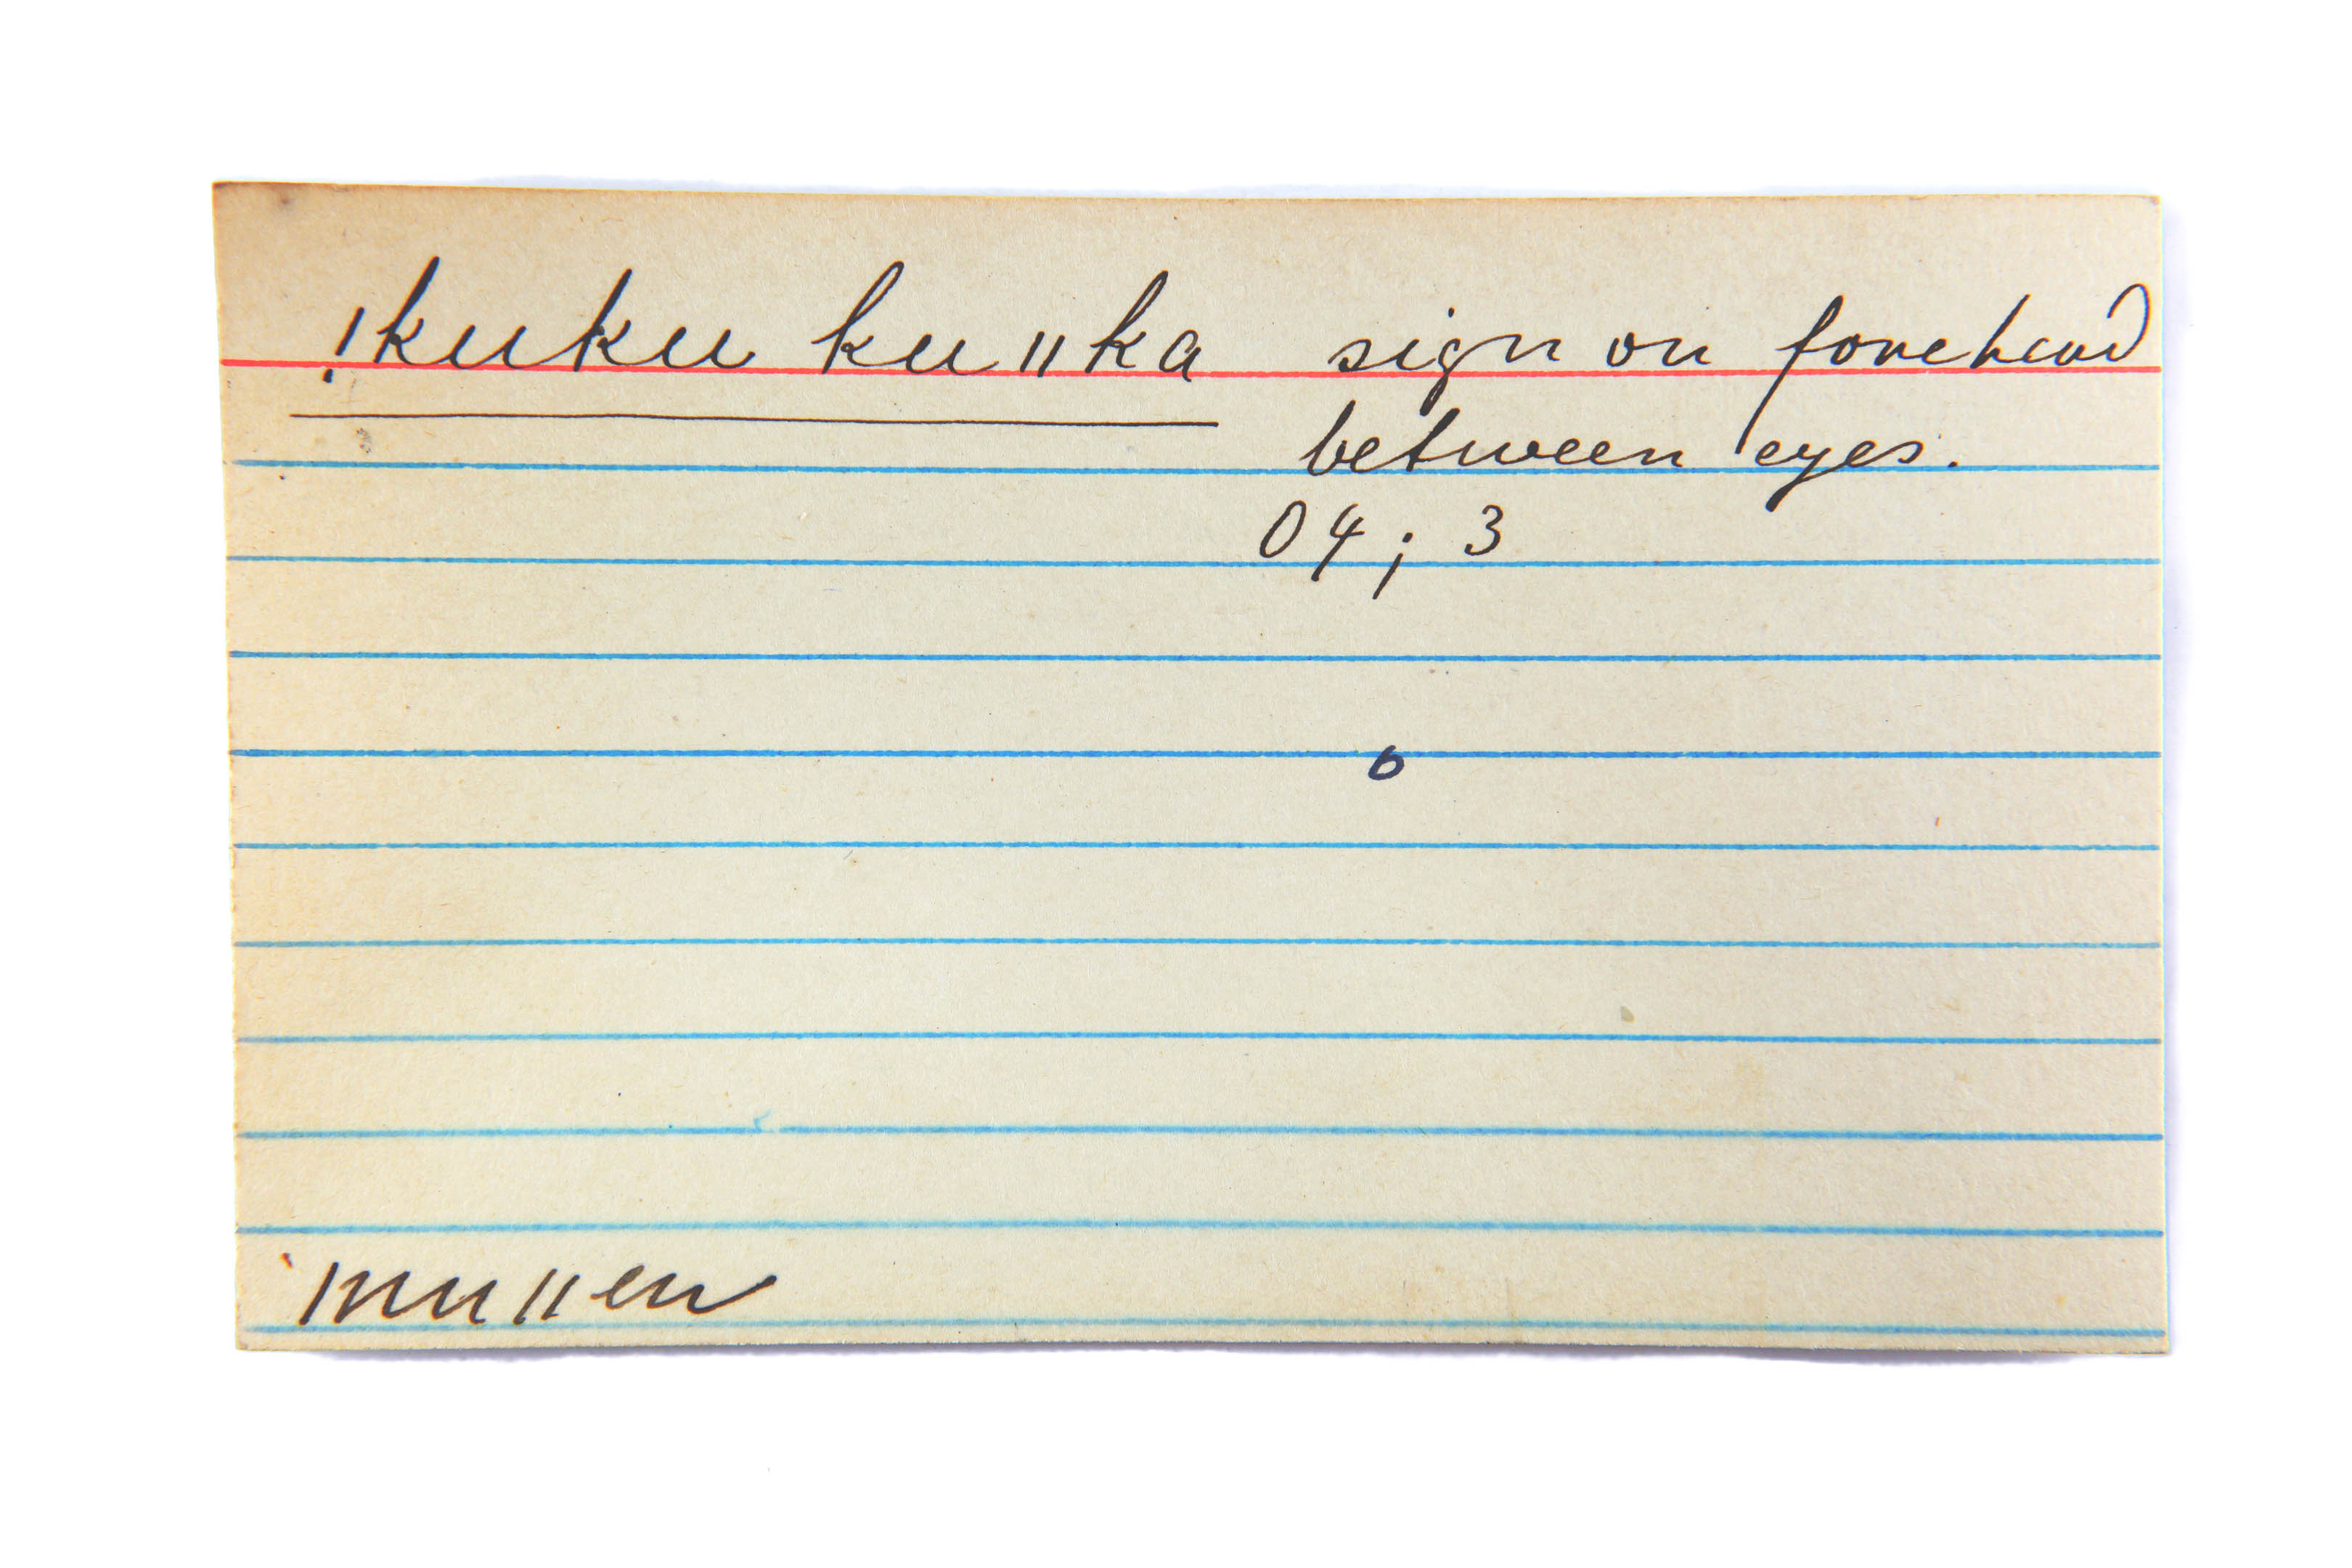 !kuku ku ǁka sign on forehead
between eyes.
04; 3
o
ǀnu ǁen